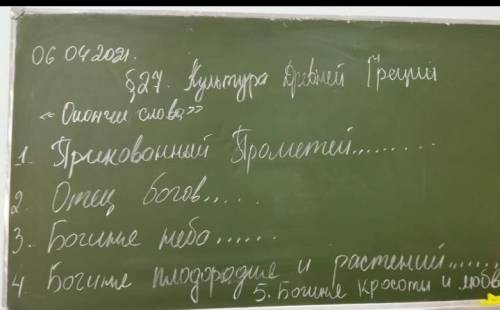 06 04 2021.
§27. Культура Древней Греции
«Окончи слова»
1. Прикованный Прометей.........
2. Отец богов.....
3. Богиня небо......
4 Богиня плодородие и растений......
5. Богиня красоты и любв